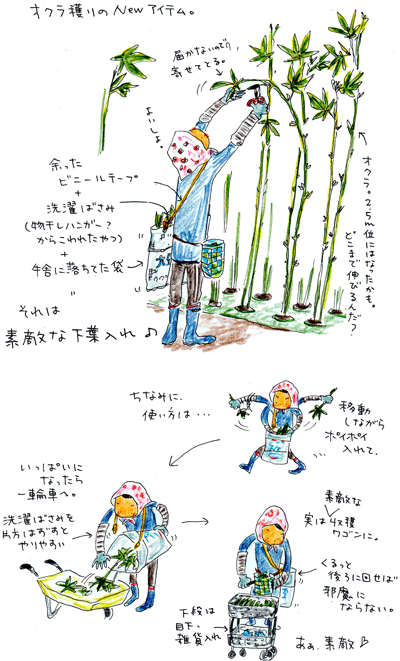 オクラ穫りのNewアイテム。
届かないので、
寄せてとる。
よいしょ。
オクラ。2.5m位にはなったかも。
どこまで伸びるんだ?
余った
ビニールテープ
+
洗濯ばさみ
(物干しハンガー?
からこわれたやつ)
+
牛舎に落ちてた袋
"
それは
素敵な下葉入れ♪
ちなみに、
使い方は・・・
移動
しながら
ポイポイ
入れて、
・・・
いっぱいに
なったら
一輪車へ。
洗濯ばさみを
片方はずすと
やりやすい
素敵な
実は収穫
ワゴンに。
くるっと
後ろに回せば
邪魔に
ならない。
下段は
目下、
雑貨入れ
あぁ、素敵♡